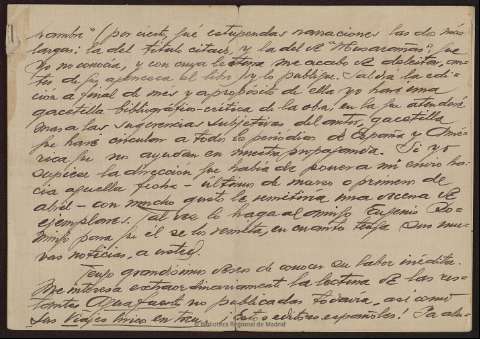 (por cierto, qué estupendas narraciones las dos más
largas: la del título citado, y la del
yo no conocía, y con cuya lectura me acabo de deleitar, an-
tes de que aparezca el libro y lo publique. Saldrá la edi-
ción a final de mes y a propósito de ella yo haré una
gacetilla bibliográfico-crítica de la obra, en la que atenderé
más a las sugerencias subjetivas del autor, gacetilla
que haré circular a todos los periódicos de España y Amé-
rica que no ayudan en nuestra propaganda. Si yo
supiese la dirección que había de poner a mi envío ha-
cia aquella fecha - últimos de marzo o primeros de
abril - con mucho gusto le remitiría una docena de
ejemplares. Tal vez lo haga al amigo Eugenio
para que él se lo remita, en cuanto tenga sus nue-
vas noticias, a usted.
Tengo grandísimos deseos de conocer su labor inédita.
Me interesa extraordinariamente la lectura de las res-
tantes Aguafuertes no publicadas todavía, así como
sus Viajes ¡Estos editores españoles!
© Biblioteca Regional de Madrid